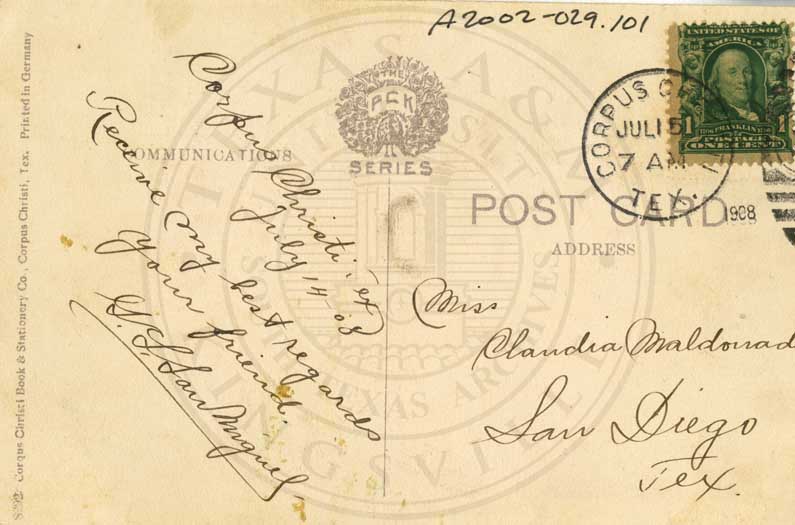 A2002-029.101
THE
PCK
SERIES
COMMUNICATIONS
POST CARD
ADDRESS
UNITED STATES OF
AMERICA
1 FRANKLIN 1
POSTAGE
ONE CENT
CORPUS
JUL 15
7 AM
TEX.
1908
Corpus Christi, Tex
July 14-08
Receive my best regards
your friend.
S. San Miguel
Miss
Claudia Maldonad
San Diego
Tex.
Corpus Christi Book & Stationery Co., Corpus Christi, Tex. Printed in Germany
TEXAS A&M UNIVERSITY
SOUTH TEXAS ARCHIVES
KINGSVILLE